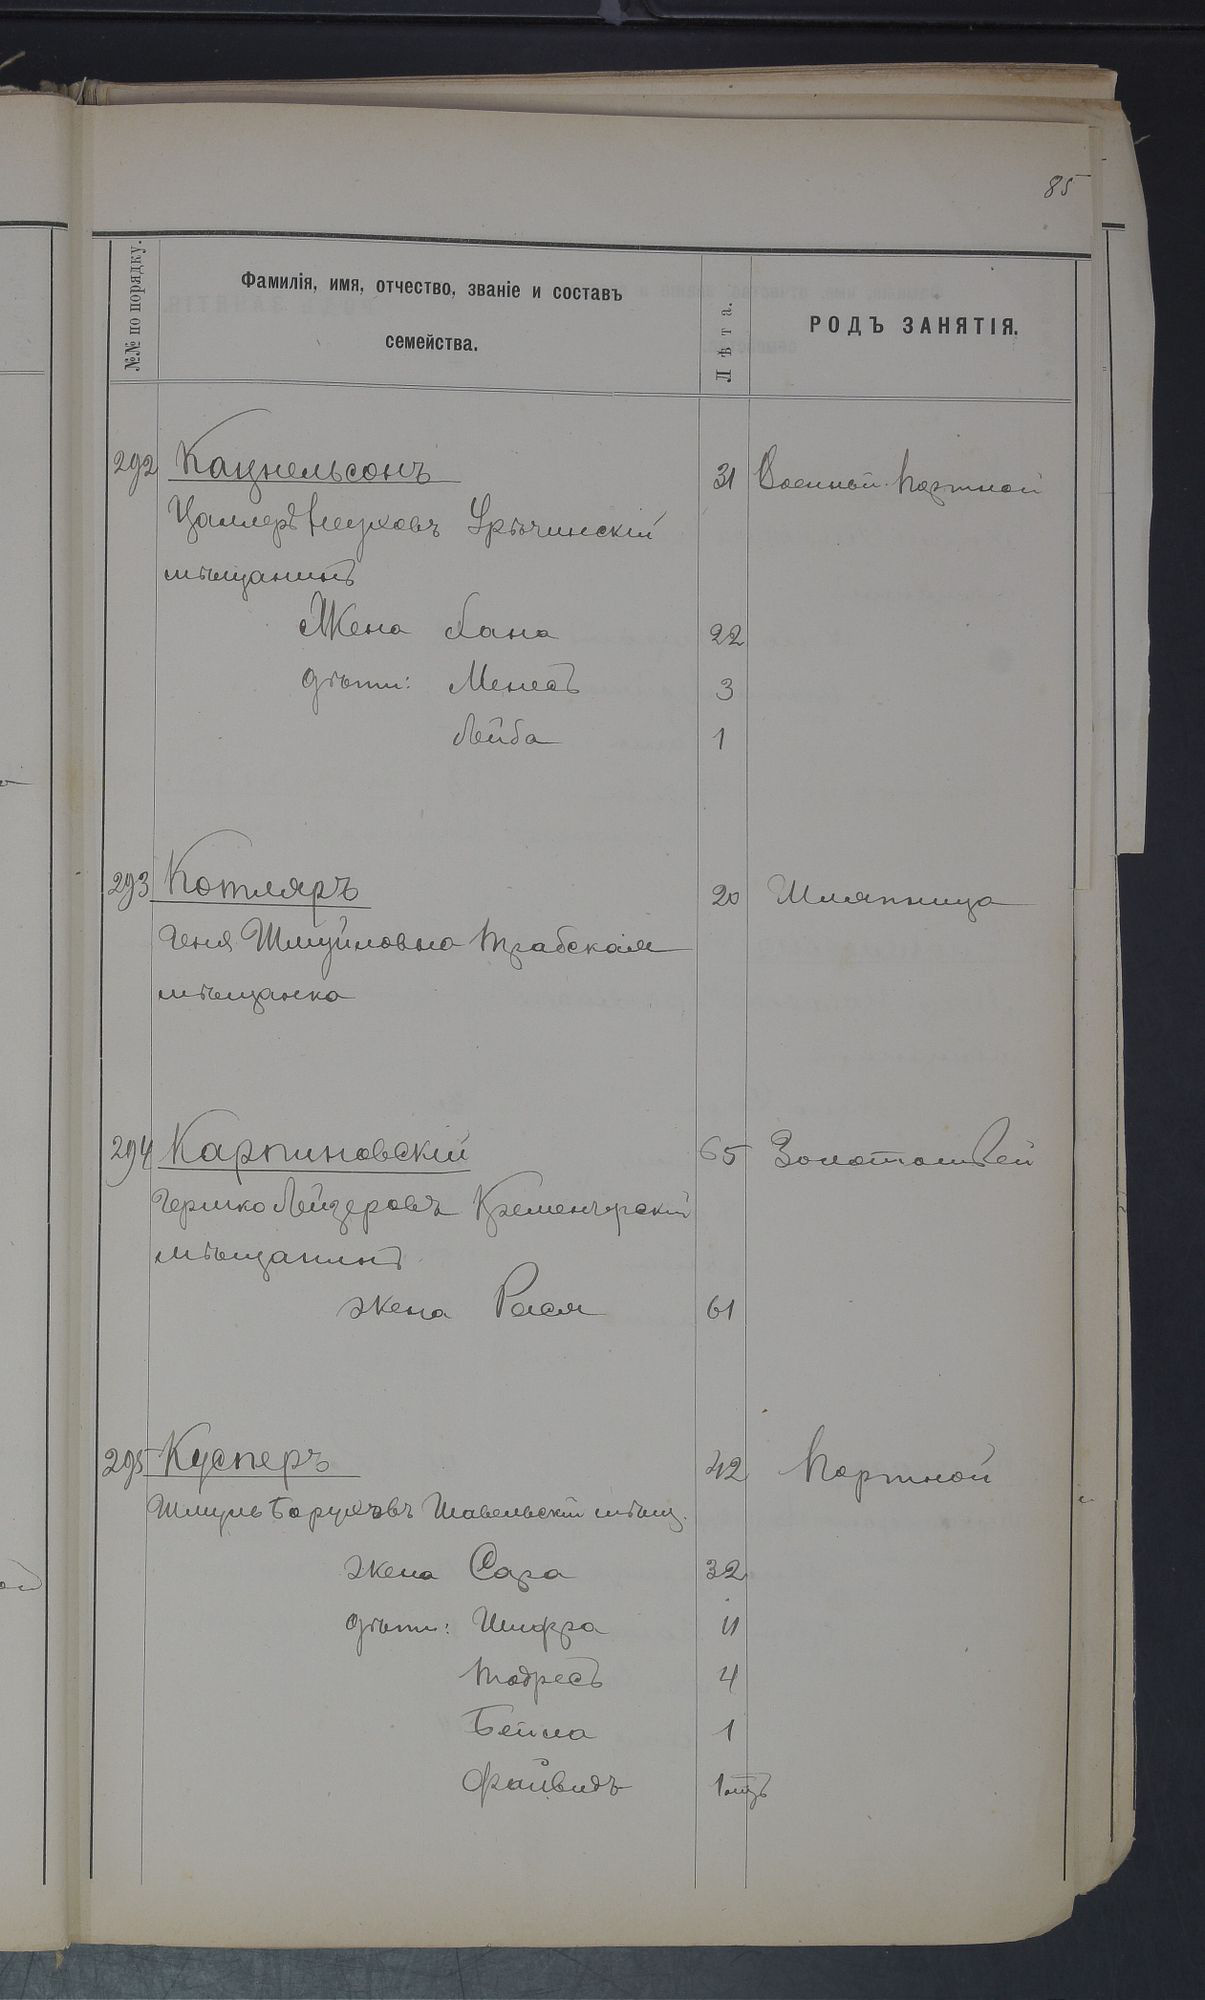 85
№№ по порядку.
Фамилія, имя, отчество, званіе и составъ
семейства.
Лѣта.
РОДЪ ЗАНЯТІЯ.
292 Кацнельсонъ 31 Военный портной
Урѣчинскій
мѣщанинъ
Жена Хана 22
дѣти: Менесъ 3
Лейба 1
293 Котляръ 20 Шляпница
Геня Шмуйловна Трабская
мѣщанка
294 Карпиновскій 65 Золотошвей
Гершко Лейзеровъ Кременчугскій
мѣщанинъ
жена Рася 61
295 Куперъ 42 Портной
Шмуль Боруховъ Шавельскій мѣщ.
жена Сара 32
дѣти: Шифра 11
Тодресъ 4
Бейла 1
Файвидъ 1 мцъ